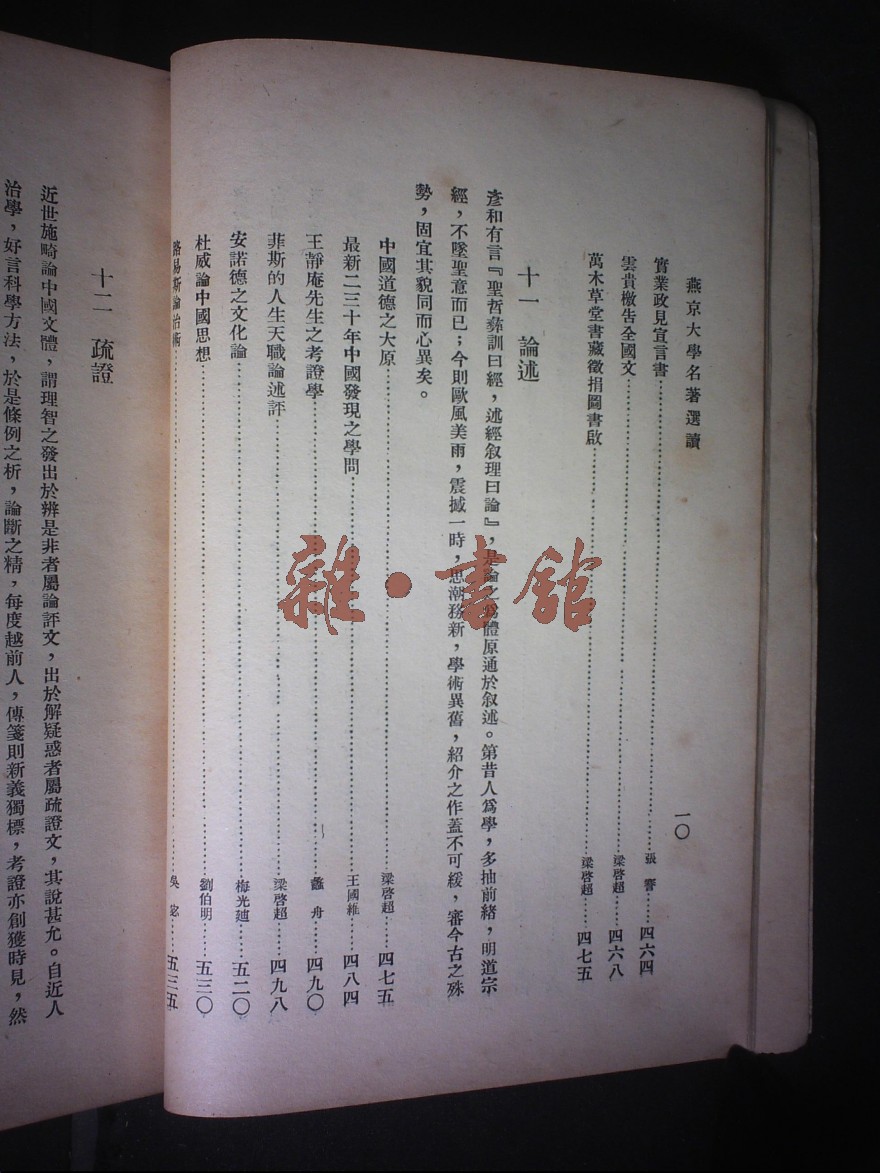 燕京大學名著選讀
一〇
實業政見宣言書……張謇……四六四
雲貴檄告全國文……梁啓超……四六八
萬木草堂書藏徵捐圖書啟……梁啓超……四七五
十一 論述
彥和有言『聖哲彝訓曰經，述經叙理曰論』，是論之爲體原通於叙述。第昔人爲學，多抽前緒，明道宗
經，不墜聖意而已；今則歐風美雨，震撼一時，思潮務新，學術異舊，紹介之作蓋不可緩，審今古之殊
勢，固宜其貌同而心異矣。
中國道德之大原……梁啓超……四七五
最新二三十年中國發現之學問……王國維……四八四
王靜庵先生之考證學……蠡舟……四九〇
菲斯的人生天職論述評……梁啓超……四九八
安諾德之文化論……梅光廸……五二〇
杜威論中國思想……劉伯明……五三〇
路易斯論治術……吳宓……五三五
十二 疏證
近世施畸論中國文體，謂理智之發出於辨是非者屬論評文，出於解疑惑者屬疏證文，其說甚允。自近人
治學，好言科學方法，於是條例之析，論斷之精，每度越前人，傳箋則新義獨標，考證亦創獲時見，然
雜·書館